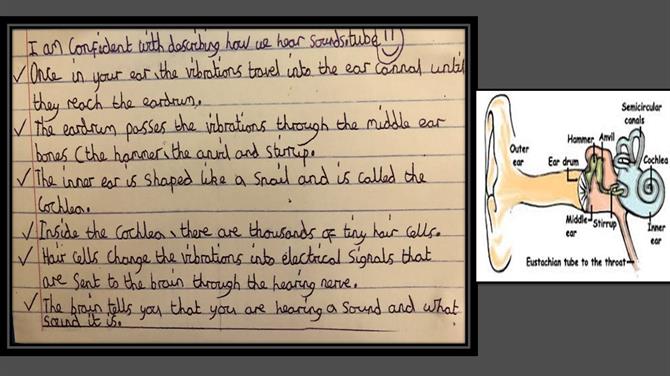 I am confident with describing how we hear sounds.tube
✓ Once in your ear, the vibrations travel into the ear cannal until
they reach the eardrum.
✓ The eardrum passes the vibrations through the middle ear
bones (the hammer, the anvil and stirrup.
✓ The inner ear is shaped like a snail and is called the
Cochlea.
✓ Inside the Cochlea, there are thousands of tiny hair cells.
✓ Hair cells change the vibrations into electrical signals that
are sent to the brain through the hearing nerve.
✓ The brain tells you that you are hearing a sound and what
sound it is.
Semicircular
canals
Hammer Anvil
Outer
ear
Ear drum
Cochlea
Middle
ear
Stirrup
Inner
ear
Eustachian tube to the throat